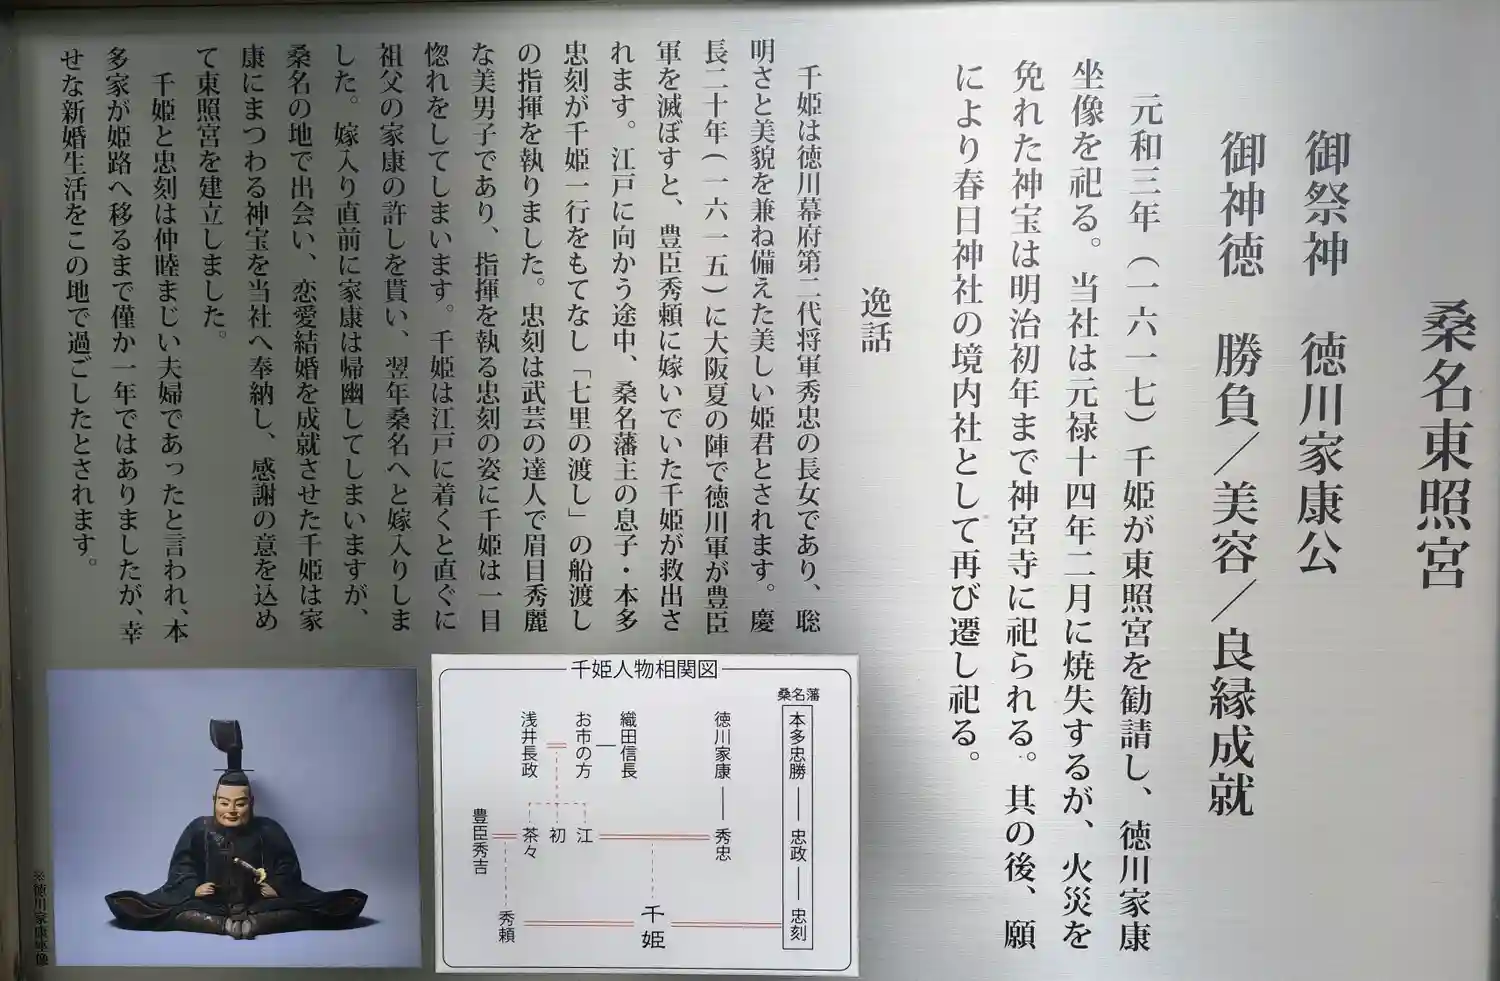 桑名東照宮
御祭神　徳川家康公
御神徳　勝負／美容／良縁成就
元和三年（一六一七）千姫が東照宮を勧請し、徳川家康
坐像を祀る。当社は元禄十四年二月に焼失するが、火災を
免れた神宝は明治初年まで神宮寺に祀られる。其の後、願
により春日神社の境内社として再び遷し祀る。
逸話
千姫は徳川幕府第二代将軍秀忠の長女であり、聡
明さと美貌を兼ね備えた美しい姫君とされます。慶
長二十年(一六一五)に大阪夏の陣で徳川軍が豊臣
軍を滅ぼすと、豊臣秀頼に嫁いでいた千姫が救出さ
れます。江戸に向かう途中、桑名藩主の息子・本多
忠刻が千姫一行をもてなし「七里の渡し」の船渡し
の指揮を執りました。忠刻は武芸の達人で眉目秀麗
な美男子であり、指揮を執る忠刻の姿に千姫は一目
惚れをしてしまいます。千姫は江戸に着くと直ぐに
祖父の家康の許しを貰い、翌年桑名へと嫁入りしま
した。嫁入り直前に家康は帰幽してしまいますが、
桑名の地で出会い、恋愛結婚を成就させた千姫は家
康にまつわる神宝を当社へ奉納し、感謝の意を込め
て東照宮を建立しました。
千姫と忠刻は仲睦まじい夫婦であったと言われ、本
多家が姫路へ移るまで僅か一年ではありましたが、幸
せな新婚生活をこの地で過ごしたとされます。
千姫人物相関図
桑名藩
本多忠勝
忠政
忠刻
徳川家康
秀忠
織田信長
お市の方
浅井長政
江
初
茶々
豊臣秀吉
秀頼
千姫
※徳川家康座像